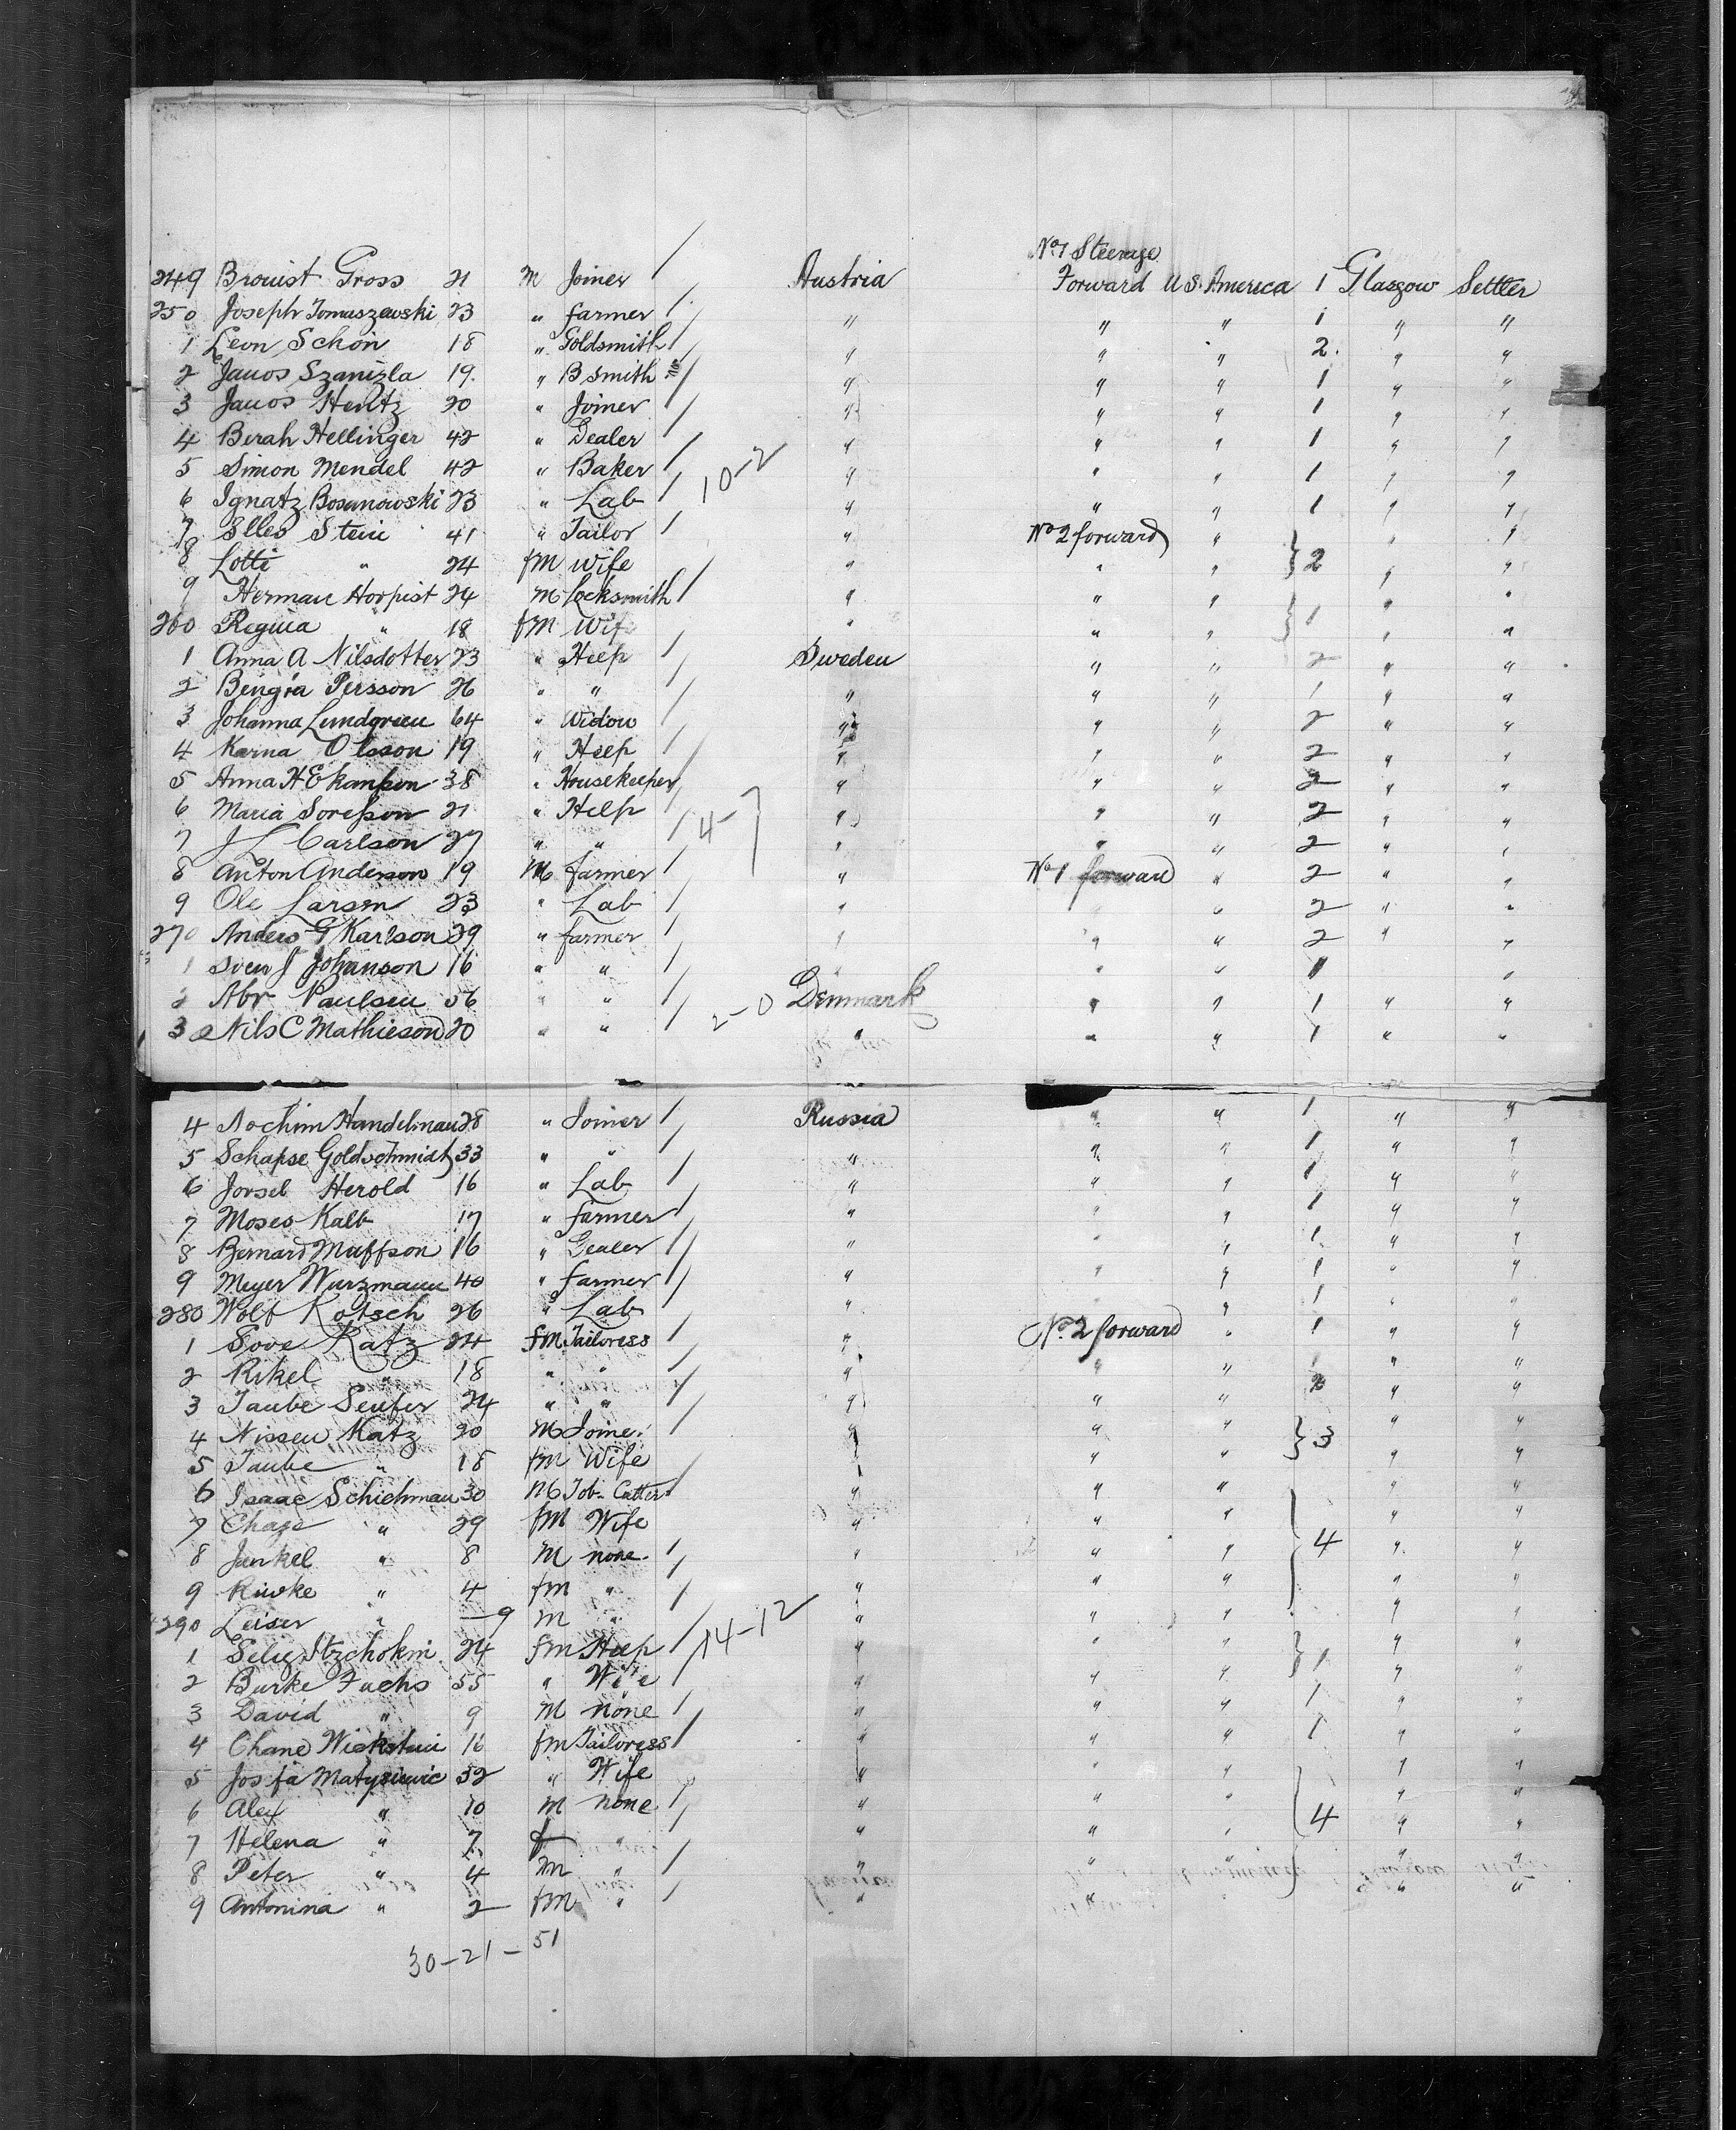 No 1 Steerage
249 Brouist Gross 21 M Joiner / Austria Forward U S. America 1 Glasgow Settler
250 Joseph Tomaszewski 23 " farmer / " " " 1 " "
1 Leon Schön 18 " Goldsmith / " " " 2 " "
2 Janos Szanizla 19. " B Smith / " " " 1 " "
3 Janos Hentz 20 " Joiner / " " " 1 " "
4 Berah Hellinger 42 " Dealer / " " " 1 " "
5 Simon Mendel 42 " Baker / 10-2 " " " 1 " "
6 Ignatz Bosanowski 23 " Lab / " " " 1 " "
7 Elles Stein 41 " Tailor / " No 2 forward " " "
8 Lotti " 24 fM Wife " " " } 2 " "
9 Herman Horpist 24 M Locksmith / " " " " "
260 Regina " 18 fM Wife " " " } 1 " "
1 Anna A Nilsdotter 23 " Help / Sweden " " 2 " "
2 Bengta Persson 26 " " / " " " 1 " "
3 Johanna Lundgreen 64 " Widow / " " " 2 " "
4 Karna Olsson 19 " Help / " " " 2 " "
5 Anna H Ekanson 38 " Housekeeper / " " " 2 " "
6 Maria Soresson 21 " Help / 4-7 " " " 2 " "
7 J L Carlson 27 " " / " " " 2 " "
8 Anton Anderson 19 M farmer / " No 1 forward " 2 " "
9 Ole Larsen 23 " Lab / " " " 2 " "
270 Anders G Karlson 29 " farmer / " " " 2 " "
1 Sven J Johanson 16 " " / " " " 1 "
2 Abr Paulsen 56 " " / 2-0 Denmark " " 1 " "
3 Nils C Mathieson 20 " " / " " " 1 " "
4 Nochim Handelman 28 " Joiner / Russia " " 1 " "
5 Schapse Goldschmidt 33 " " / " " " 1 " "
6 Jorsel Herold 16 " Lab / " " " 1 " "
7 Moses Kalb 17 " farmer / " " " 1 " "
8 Bernard Muffson 16 " Dealer / " " " 1 " "
9 Meyer Wurzmann 40 " farmer / " " " 1 " "
280 Wolf Kotsch 26 " Lab / " " " 1 " "
1 Sove Katz 24 fM Tailoress / " No. 2 forward " 1 " "
2 Rikel " 18 " " / " " " 1 " "
3 Taube Seufer 24 " " / " " " 2 " "
4 Nissen Katz 20 M Joiner / " " " " "
5 Taube " 18 fM Wife " " " } 3 " "
6 Isaac Schichman 30 M Tob. Cutter / " " " " "
7 Chage " 29 fM Wife " " " " "
8 Jankel " 8 M none. / " " " } 4 " "
9 Riwke " 4 fM " / " " " " "
290 Leiser " — 9 M " " " " " "
1 Selig Itzchokin 24 fM Help / 14-12 " " " " "
2 Burke Fuchs 55 " Wife / " " " } 1 " "
3 David " 9 M none / " " " 1 " "
4 Chane 16 fM Tailoress / " " " 1 " "
5 Josefa Matysiewic 32 " Wife " " " " "
6 Alex " 10 M none / " " " " "
7 Helena " 7 f " / " " " } 4 " "
8 Peter " 4 M " / " " " " "
9 Antonina " 2 fM " / " " " "
30-21-51